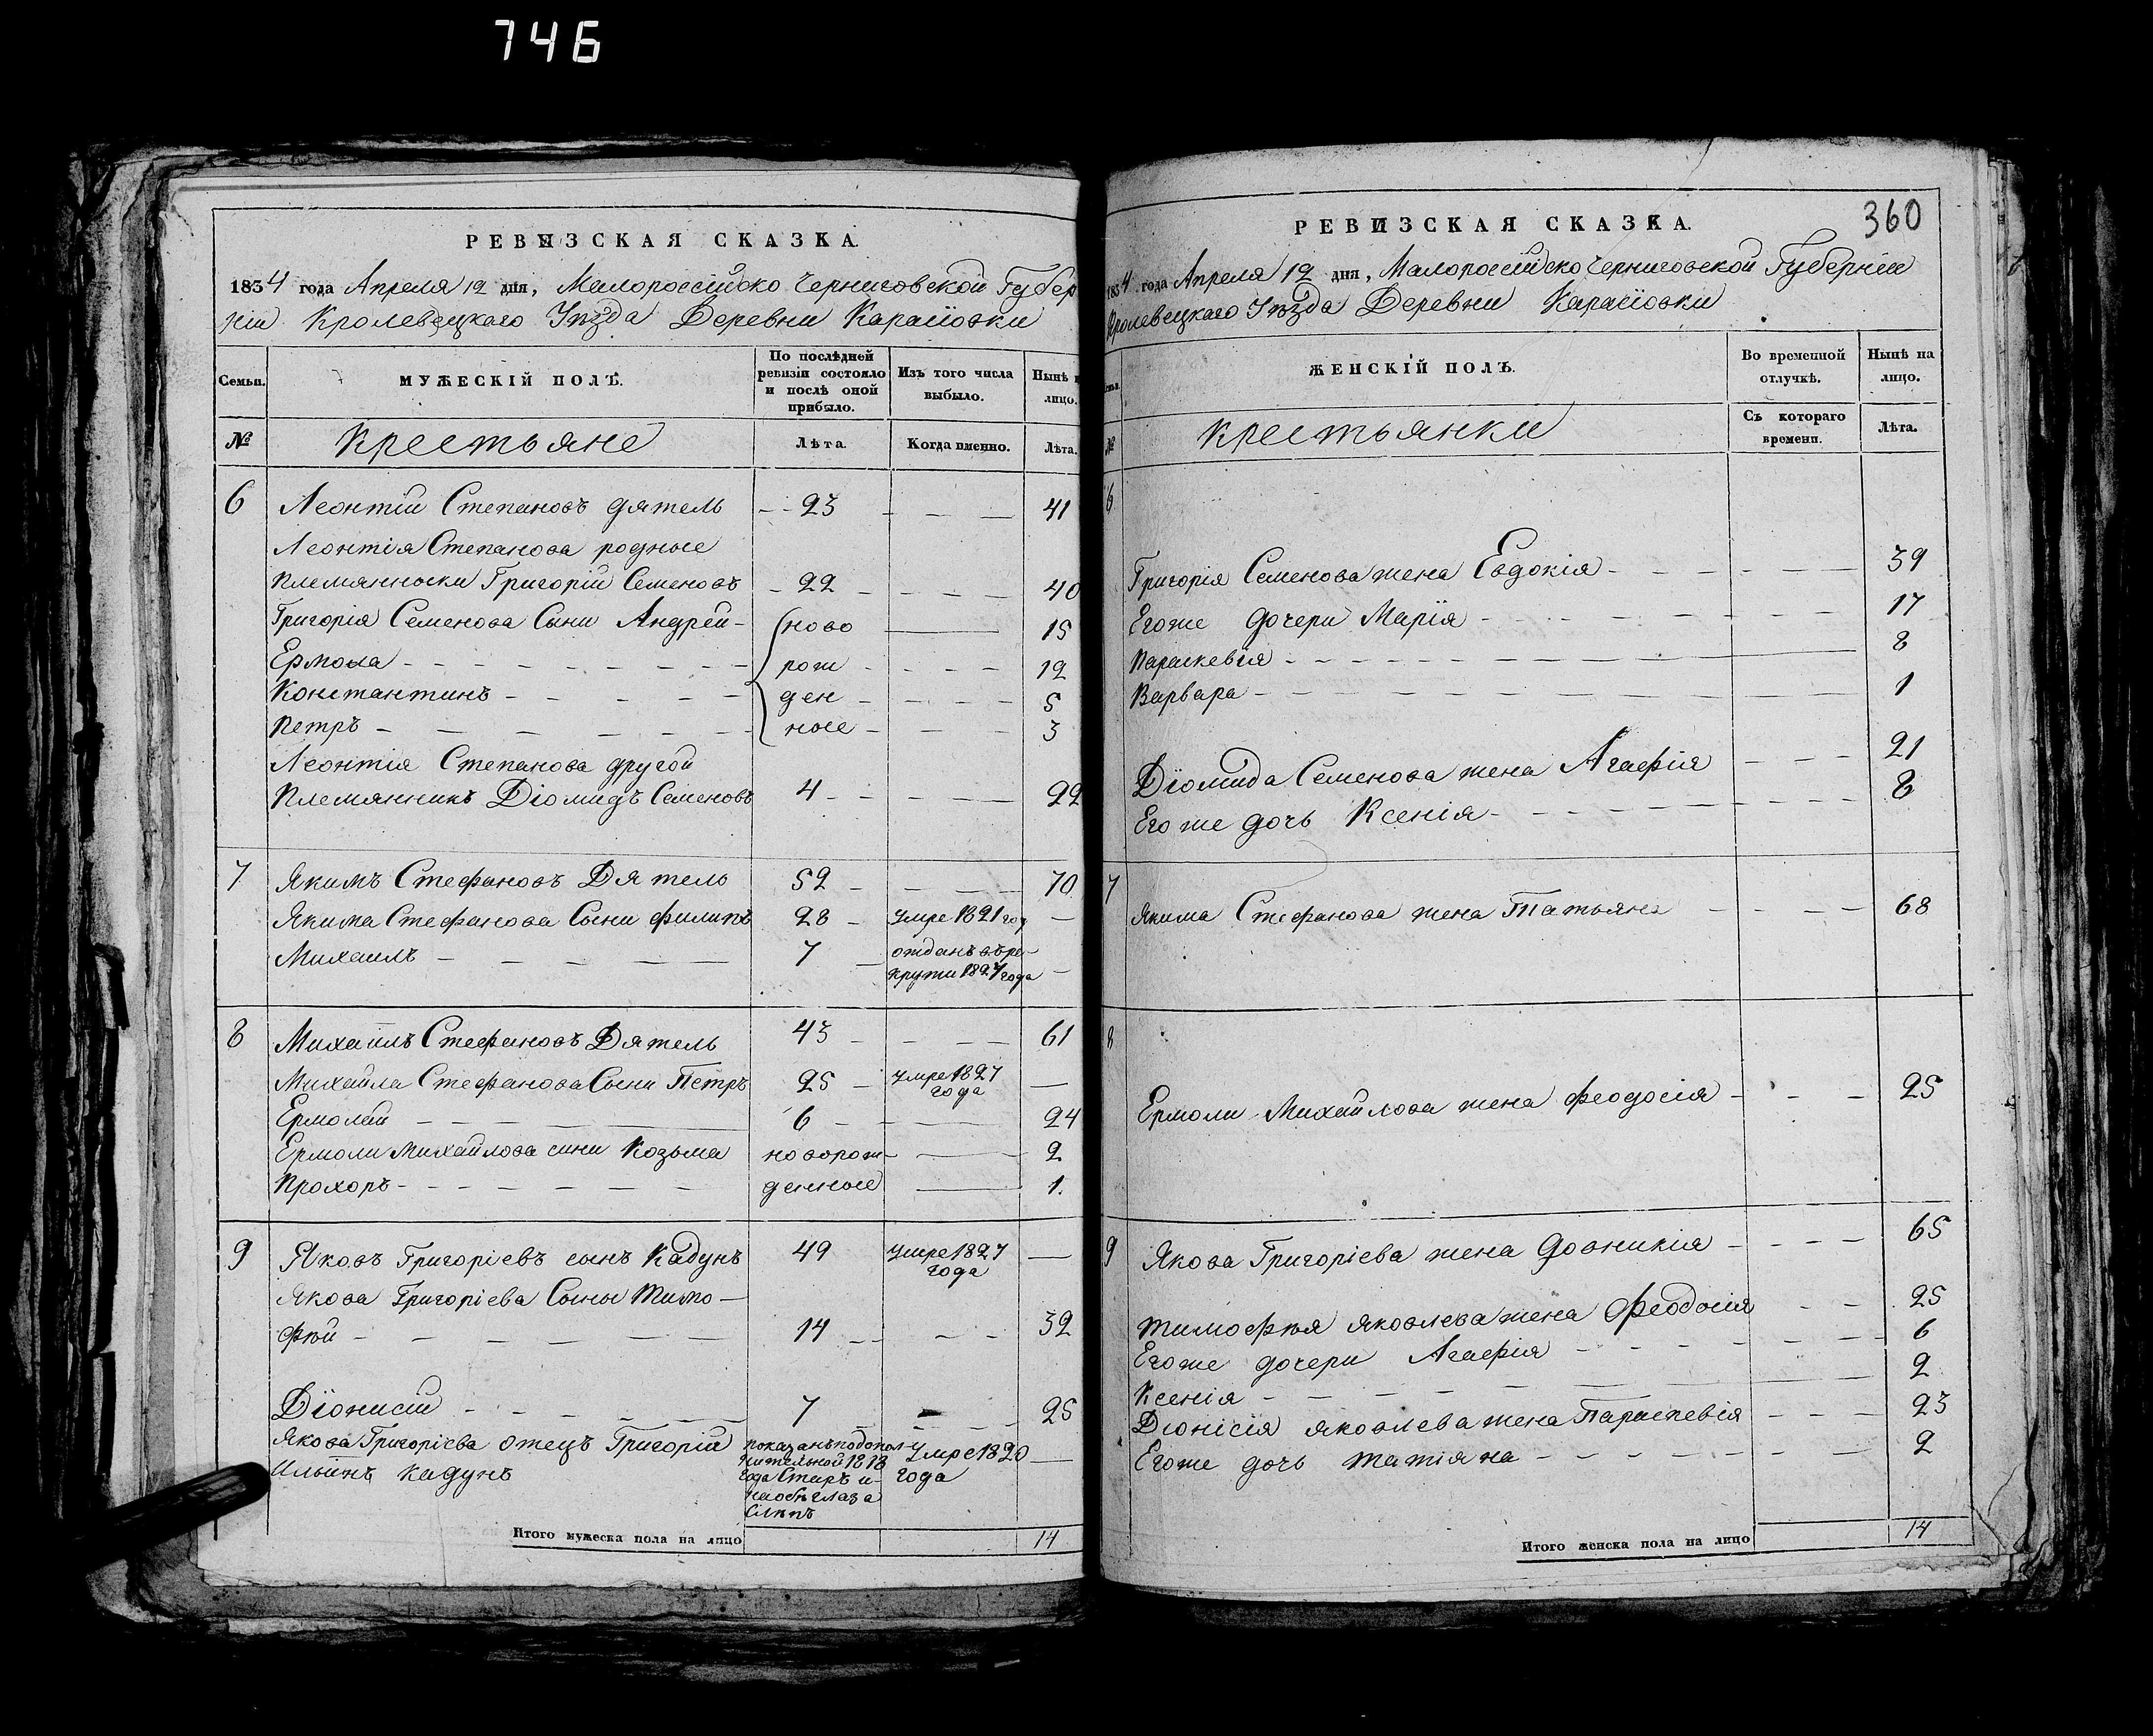 746
РЕВИЗСКАЯ СКАЗКА.
1834 года Апреля 12 дня, Малороссійско Черниговской Губер
ніи Кролевецкаго Уѣзда Деревни Карасіовки
Семьи.
МУЖЕСКІЙ ПОЛЪ.
По послѣдней ревизіи состояло и послѣ оной прибыло.
Изъ того числа выбыло.
Нынѣ на лицо.
№
Крестьяне
Лѣта.
Когда именно.
Лѣта.
6 Леонтій Степановъ дятель 23 41
Леонтія Степанова родные
племянники Григорій Семеновъ 22 40
Григорія Семенова Сыни Андрей ново 15
Ермола рож 12
Константинъ ден 5
Петръ ные 3
Леонтія Степанова другой
племянникъ Діомидъ Семеновъ 4 22
7 Якимъ Стефановъ Дятель 52 70
Якима Стефанова Сыни филипъ 28 умре 1821 год
Михаилъ 7 отданъ въ ре-
крути 1827 года
8 Михаилъ Стефановъ Дятель 43 61
Михайла Стефанова Сыни Петръ 25 умре 1827
года
Ермолай 6 24
Ермоли Михайлова сини Козьма новорож- 2
Прохоръ денные 1.
9 Яковъ Григоріевъ сынъ Кадунъ 49 умре 1827
года
Якова Григоріева Сыны Тимо-
фѣй 14 32
Діонисій 7 25
Якова Григоріева отецъ Григорій показанъ по допол- Умре 1820
Ильинъ кадунъ нительной 1818 года
года Старъ и
на обѣ глаза
слѣпъ
Итого мужеска пола на лицо 14
360
РЕВИЗСКАЯ СКАЗКА.
1834 года Апреля 12 дня, Малороссійско Черниговской Губерніи
Кролевецкаго Уѣзда Деревни Карасіовки
ЖЕНСКІЙ ПОЛЪ.
Во временной отлучкѣ.
Нынѣ на лицо.
№
Крестьянки
Съ котораго времени.
Лѣта.
6
Григорія Семенова жена Евдокія 39
Егоже дочери Марія 17
Параскевія 8
Варвара 1
Діомида Семенова жена Агафія 21
Его же дочь Ксенія 8
7
Якима Стефанова жена Татьяна 68
8
Ермоли Михайлова жена Феодосія 25
9 Якова Григоріева жена Довникія 65
Тимофѣя Яковлева жена Феодосія 25
Егоже дочери Агафія 6
Ксенія 2
Діонісія Яковлева жена Параскевія 23
Егоже дочь Татіяна 2
Итого женска пола на лицо 14